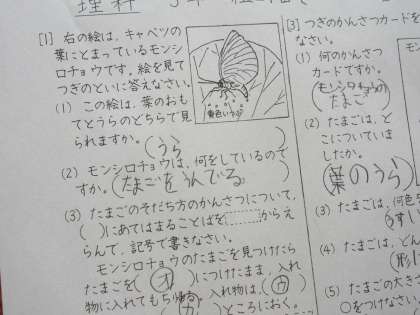 理科
[1] 右の絵は、キャベツの
葉にとまっているモンシ
ロチョウです。絵を見て
つぎのといに答えなさい。
(1) この絵は、葉のおも
てとうらのどちらで見
られますか。(うら)
(2) モンシロチョウは、何をしているので
すか。(たまごをうんでる)
(3) たまごのそだち方のかんさつについて、
( )にあてはまることばを からえ
らんで、記号で書きなさい。
モンシロチョウのたまごを見つけたら
たまごを(オ)につけたまま、入れ
物に入れてもち帰る。入れ物は、(ウ)
(カ)ところにおく。
黄色いたまご
[3] つぎのかんさつカードを
なさい。
(1) 何のかんさつ
カードですか。
(モンシロチョウの
たまご)
(2) たまごは、ど
こについていま
したか。
(葉のうら)
(3) たまごは、何色
(うす
(4) たまごは、どん
(形
(5) たまごの大き
○をつけなさい。